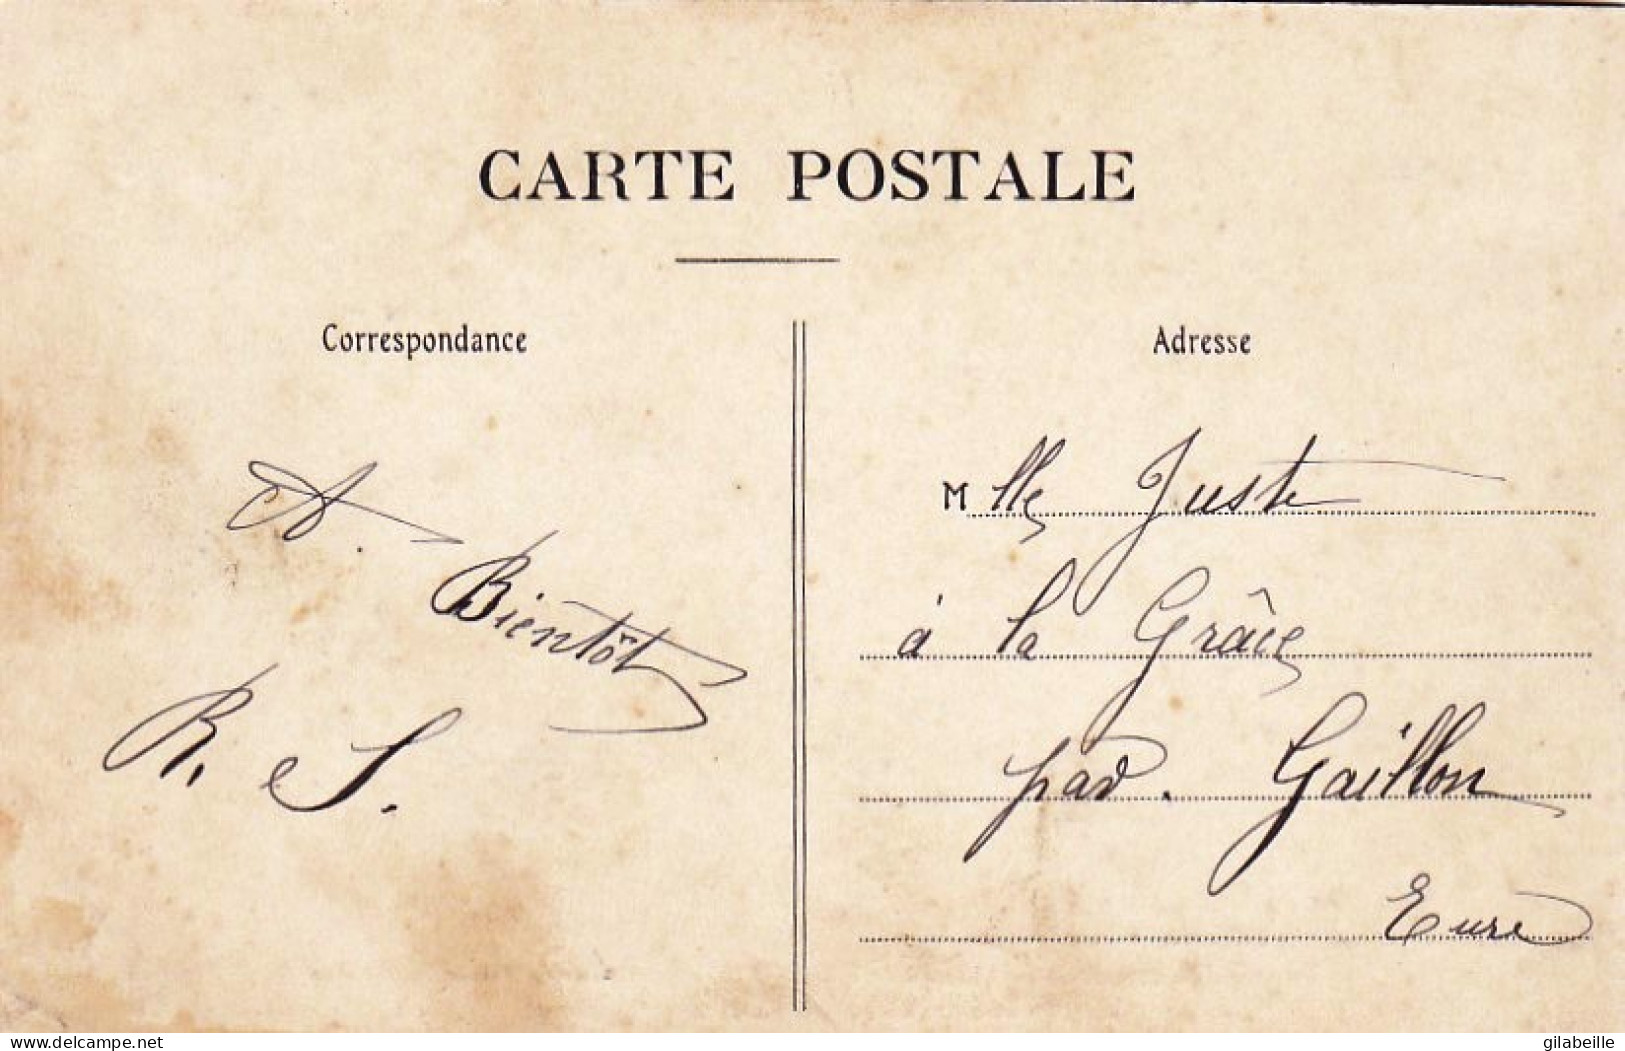 CARTE POSTALE
Correspondance
A. Bientôt
R. e S.
Adresse
Mlle Juste
à la Grâce
par. Gaillon
Eure
www.delcampe.net
gilabeille